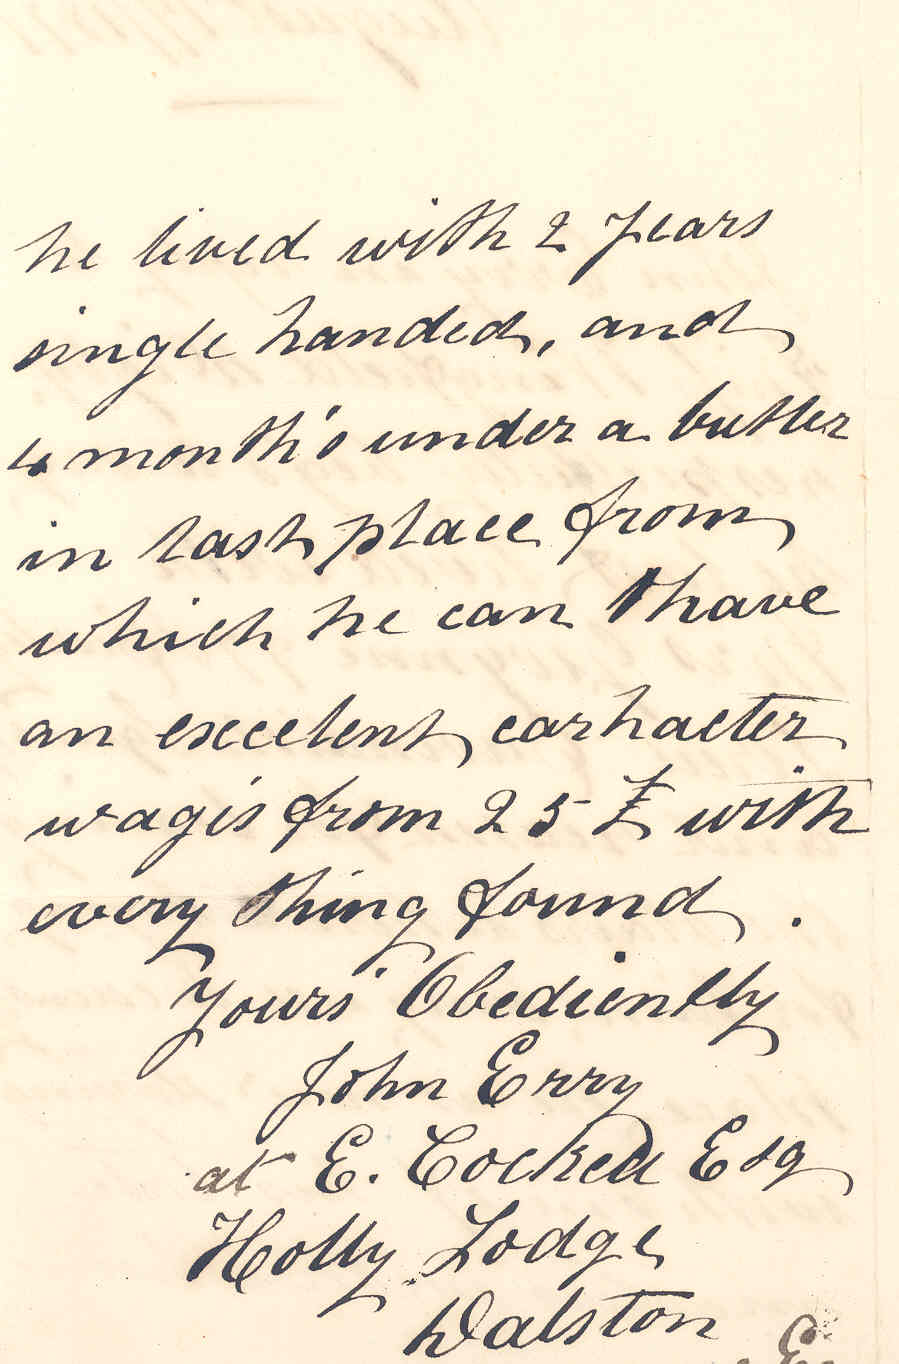 he lived with 2 years
single handed, and
4 month's under a butler
in last place from
which he can have
an excelent carhacter
wagi's from 25 £ with
every thing found.
Yours Obediently
John Erry
at E. Cockell Esq
Holly Lodge
Dalston
E